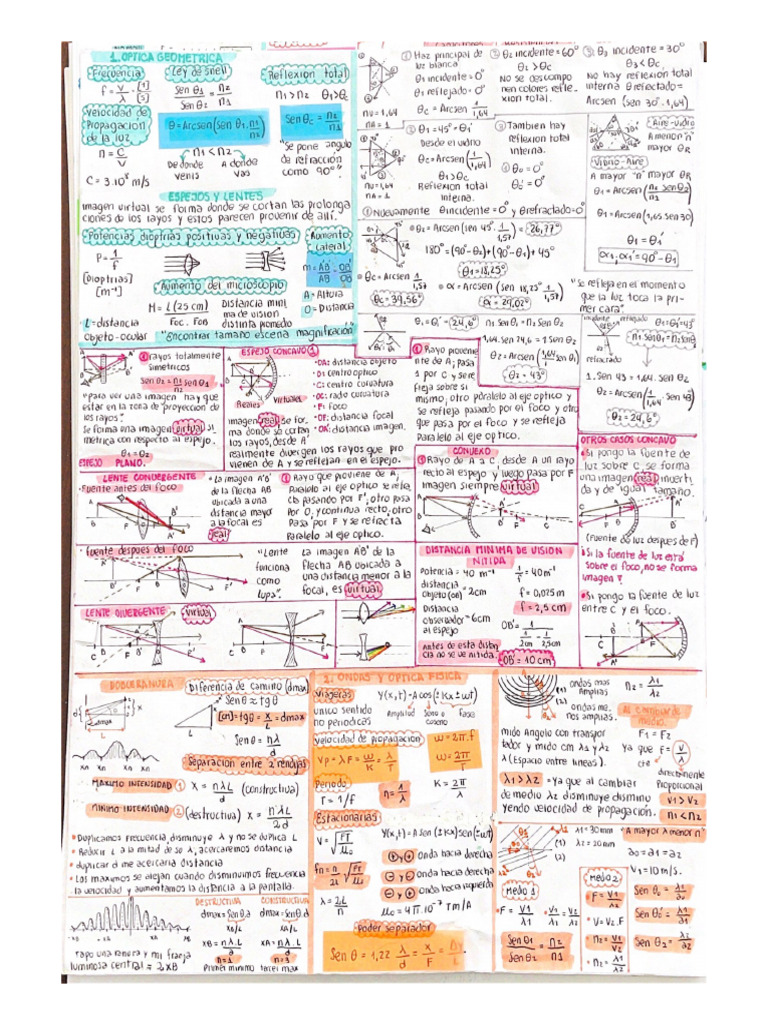 1. OPTICA GEOMETRICA
Frecuencia
Ley de snell
Reflexion total
f = v/λ [1]/[s]
Sen θ1/Sen θ2 = n2/n1
n1 > n2 θ1 > θc
Velocidad de
Propagacion
de la luz
θ = Arcsen(sen θ1.n1/n2)
Sen θc = n2/n1
n = C/V
n1 < n2
De donde venis
A donde vas
"Se pone angulo
de refracción
como 90°"
C = 3.10⁸ m/s
ESPEJOS Y LENTES
imagen virtual se forma donde se cortan las prolonga
ciones de los rayos y estos parecen provenir de allí.
Potencias dioptrias positivas y negativas
Aumento
Lateral
P = 1/f
[Dioptrias]
[m⁻¹]
m = A'B'/AB = OB'/OB
Aumento del microscopio
A = Altura
O = Distancia
M = L (25 cm)/Foc. Fob
Distancia mini
ma de vision
distinta promedio
L = distancia
objeto-ocular
"Encontrar tamaño escena magnificación"
① Haz principal de
luz blanca
θ1 incidente = 0°
θ1 reflejado = 0°
nv = 1,64
na = 1
② θ2 incidente = 60°
θ2 > θc
No se descompo
nen colores refle-
xion total.
③ θ3 incidente = 30°
θ3 < θc
No hay reflexion total
interna θrefractado =
Arcsen (sen 30°.1,64)
① θ1 = 45° = θ1'
Desde el vidrio
θc = Arcsen (1/1,64)
θ1 > θc
Reflexion total
interna.
nv = 1,64
na = 1
② Tambien hay
reflexion total
interna.
③ θo = 0°
θo' = 0°
① Nuevamente θincidente = 0° y θrefractado = 0°
Aire-Vidrio
A menor "n"
mayor θR
Vidrio-Aire
A mayor "n" mayor θR
θ1 = Arcsen (n2 sen θ2/n1)
θ1 = Arcsen (1,65 sen 30)
θ1 = θ1'
α1.α1' = 90° - θ1
θ2 = Arcsen (sen 45°.1/1,57) = 26,77°
180° = (90° - θ2) + (90° - θ1) + 45°
θ1 = 18,25°
θc = Arcsen 1/1,57
θc = 39,56°
α = Arcsen (sen 18,25°.1,57)
α = 29,02°
"se refleja en el momento
que la luz toca la pri-
mer cara".
θ1 = θ1' = 24,6°
n1 Sen θ1 = n2 Sen θ2
1,64. sen 24,6 = 1 Sen θ2
θ2 = Arcsen (1,64/1 sen 24,6)
θ2 = 43°
incidente
reflejado
θi = θi' = 43°
n1. Senθ1 = n2 Senθ2
refractado
1. Sen 43 = 1,64. Sen θ2
θ2 = Arcsen (1/1,64 . sen 43)
θ2 = 24,6°
① rayos totalmente
simetricos
sen θ2 = n1/n2 sen θ1
"para ver una imagen hay que
estar en la zona de proyeccion de
los rayos".
Se forma una imagen virtual si
metrica con respecto al espejo.
θ1 = θ2
ESPEJO PLANO.
ESPEJO CONCAVO ①
Reales
Virtuales
• OA: distancia objeto
• O: centro optico
• C: centro curvatura
• OC: radio curvatura
• F: foco
• OF: distancia focal
• OA': distancia imagen.
imagen real se for.
ma donde se cortan
los rayos, desde A'
realmente divergen los rayos que pro
vienen de A y se reflejan en el espejo.
① Rayo provenie
nte de A; pasa
por C y se re
fleja sobre si
mismo, otro páralelo al eje optico y
se refleja pasando por el foco y otro
que pasa por el foco y se refleja
Paralelo al eje optico.
CONVEXO
① Rayo de A a C desde A un rayo
recto al espejo y luego pasa por F
imagen siempre virtual
OTROS CASOS CONCAVO
• Si pongo la fuente de
luz sobre C se forma
una imagen real inverti
da y de igual tamaño.
(Fuente de luz despues de F)
• Si la fuente de luz está
sobre el foco, no se forma
imagen
• Si pongo la fuente de luz
entre C y el foco.
LENTE CONVERGENTE
• Fuente antes del foco
• La imagen A'B'
de la flecha AB
ubicada a una
distancia mayor
a la focal es
real
① Rayo que proviene de A,
Paralelo al eje optico se refra
cta pasando por F', otro pasa
Por O, y continua recto, otro
Pasa por F y se refracta
Paralelo al eje optico.
• Fuente despues del foco
"Lente
funciona
como
lupa".
La imagen A'B' de la
flecha AB ubicada a
una distancia menor a la
focal, es virtual
LENTE DIVERGENTE
Virtual
DISTANCIA MINIMA DE VISION
NITIDA
Potencia = 40 m⁻¹
1/f = 40 m⁻¹
distancia
objeto (OB) = 2cm
f = 0,025 m
f = 2,5 cm
Distancia
observador = 6cm
al espejo
OB' = 1/(1/2cm - 1/2,5cm)
Antes de esta distan
cia no se ve nitida.
OB' = 10 cm
DOBLERANURA
Diferencia de camino (dmax)
Sen θ ≈ tg θ
[cm] = tgθ = x/L = dmax
Sen θ = nλ/d
Separacion entre 2 rendijas
MAXIMO INTENSIDAD ① X = nλL/d (constructiva)
MINIMO INTENSIDAD ② (destructiva) X = nλL/2d
• Duplicamos frecuencia disminuye λ y no se duplica L
• Reducir L a la mitad de se λ, acercaremos distancia
• duplicar d me acercaria distancia
• Los maximos se alejan cuando disminuimos frecuencia
la velocidad y aumentamos la distancia a la pantalla.
DESTRUCTIVA
CONSTRUCTIVA
dmax = Senθ.d
dmax = senθ.d
XB/L
XA/L
XB = n λ.L/d
XA = n λ.L/d
n = 1
n = 3
Primer minimo
tercer max
tapo una ranura y mi franja
luminosa central = 2XB
2. ONDAS Y OPTICA FISICA
Viajeras
unico sentido
no periodicas
Y(x,t) = A cos (± kx ± wt)
Amplitud
Seno o
coseno
Fase
Velocidad de propagacion
VP = λF = w/k = λ/T
w = 2π.f
w = 2π/T
Periodo
T = 1/f
n = λ/λ
K = 2π/λ
Estacionarias
V = √(FT/μo)
Y(x,t) = A sen (± kx) sen (± wt)
fn = n/2L √(FT/μo)
⊕ y ⊖ Onda hacia derecha
⊖ y ⊕ Onda hacia derecha
⊖ y ⊖ Onda hacia izquierda
λ = 2L/n
μo = 4π.10⁻⁷ Tm/A
Poder separador
Sen θ = 1,22 λ/d = x/F = Dy/L
ondas mas
Amplias
ondas me.
nos amplias.
n2 = λ1/λ2
Al cambiar de
medio.
F1 = F2
mido Angulo con transpor
tador y mido cm λ1 y λ2
(Espacio entre lineas).
ya que F = V/λ
cte
directamente
Proporcional
λ1 > λ2 = Ya que al cambiar
de medio λ2 disminuye disminu
yendo velocidad de propagacion.
V1 > V2
n1 < n2
λ1 = 30mm
λ2 = 20mm
"A mayor λ menor n"
a0 = a1 = a2
V1 = 10 m/s.
Medio 1
• F = V1/λ1
• V1/λ1 = V2/λ2
Sen θ1/Sen θ2 = n2/n1
Medio 2
• F = V1/λ1
• V = V2.F
• n2 = V1/V2
• n2 = λ1/λ2
Sen θo = λ1/a0
Sen θo' = λ1/a1
Sen θ2 = λ2/a2